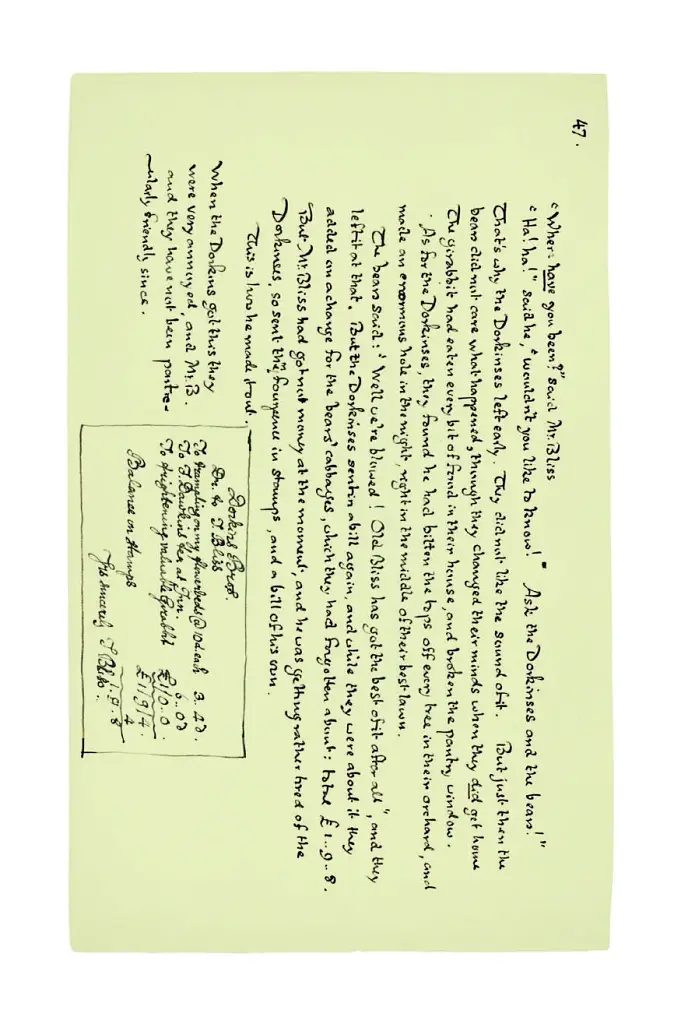 47.
"Where have you been?" said Mr. Bliss
"Ha! ha!" said he, "wouldn't you like to know!" Ask the Dorkinses and the bears!"
That's why the Dorkinses left early. They did not like the sound of it. But just then the
bears did not care what happened, though they changed their minds when they did get home
The girabbit had eaten every bit of food in their house, and broken the pantry window.
. As for the Dorkinses, they found he had bitten the tops off every tree in their orchard, and
made an enormous hole in the night, right in the middle of their best lawn.
The bears said: 'Well we're blowed! Old Bliss has got the best of it after all", and they
left it at that. But the Dorkinses sent in a bill again, and while they were about it they
added on a charge for the bears' cabbages, which they had forgotten about: total £1..9..8.
But Mr. Bliss had got no money at the moment, and he was getting rather tired of the
Dorkinses, so sent them fourpence in stamps, and a bill of his own.
This is how he made it out. —
When the Dorkins got this they
were very annoyed, and Mr. B.
and they have not been partic-
-ularly friendly since.
Dorkins Bros.
Dr. to J. Bliss
To trampling on my flowerbeds @ 10d each 3. 4d.
To F. Dorkins tea at Inn. 6. 0d
To frightening valuable Girabbit £1/0.0.
£1/9/4.
1. 9. 8
Balance in Stamps 4
Yrs sincerely J Bliss.